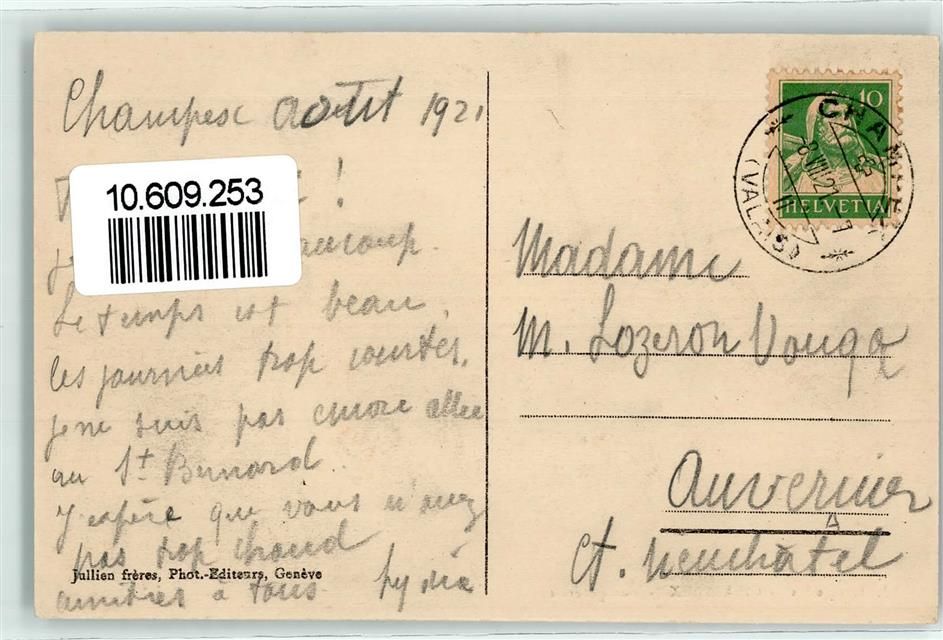 Champex août 1921
10.609.253
!
beaucoup.
Le temps est beau,
les journées trop courtes.
je ne suis pas encore allée
au St Bernard.
J'espère que vous n'avez
pas trop chaud
Jullien frères, Phot.-Editeurs, Genève
amitiés à tous Lydia
10
HELVETIA
CHAMPEX
(VALAIS)
Madame
M. Lozeron Vouga
Auvernier
Ct. Neuchâtel